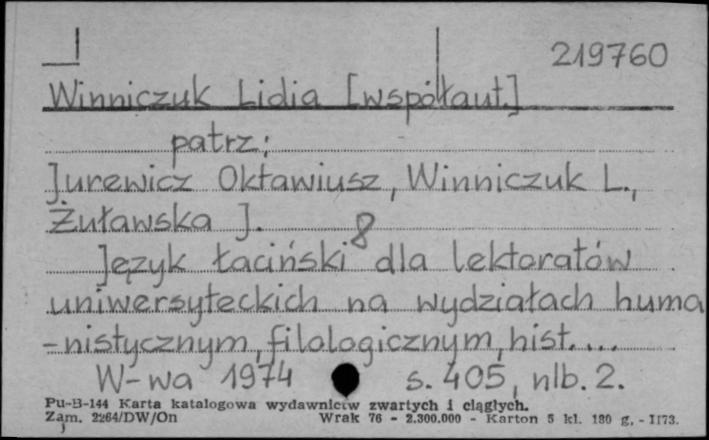 219760
Winniczuk Lidia [współaut.]
patrz:
Jurewicz Oktawiusz, Winniczuk L.,
Żuławska J.
8
Język łaciński dla lektoratów
uniwersyteckich na wydziałach huma
-nistycznym, filologicznym, hist....
W-wa 1974 s. 405, nlb. 2.
Pu-B-144 Karta katalogowa wydawnictw zwartych i ciągłych.
Zam. 2264/DW/On Wrak 76 - 2.300.000 - Karton 5 kl. 180 g. - II73.